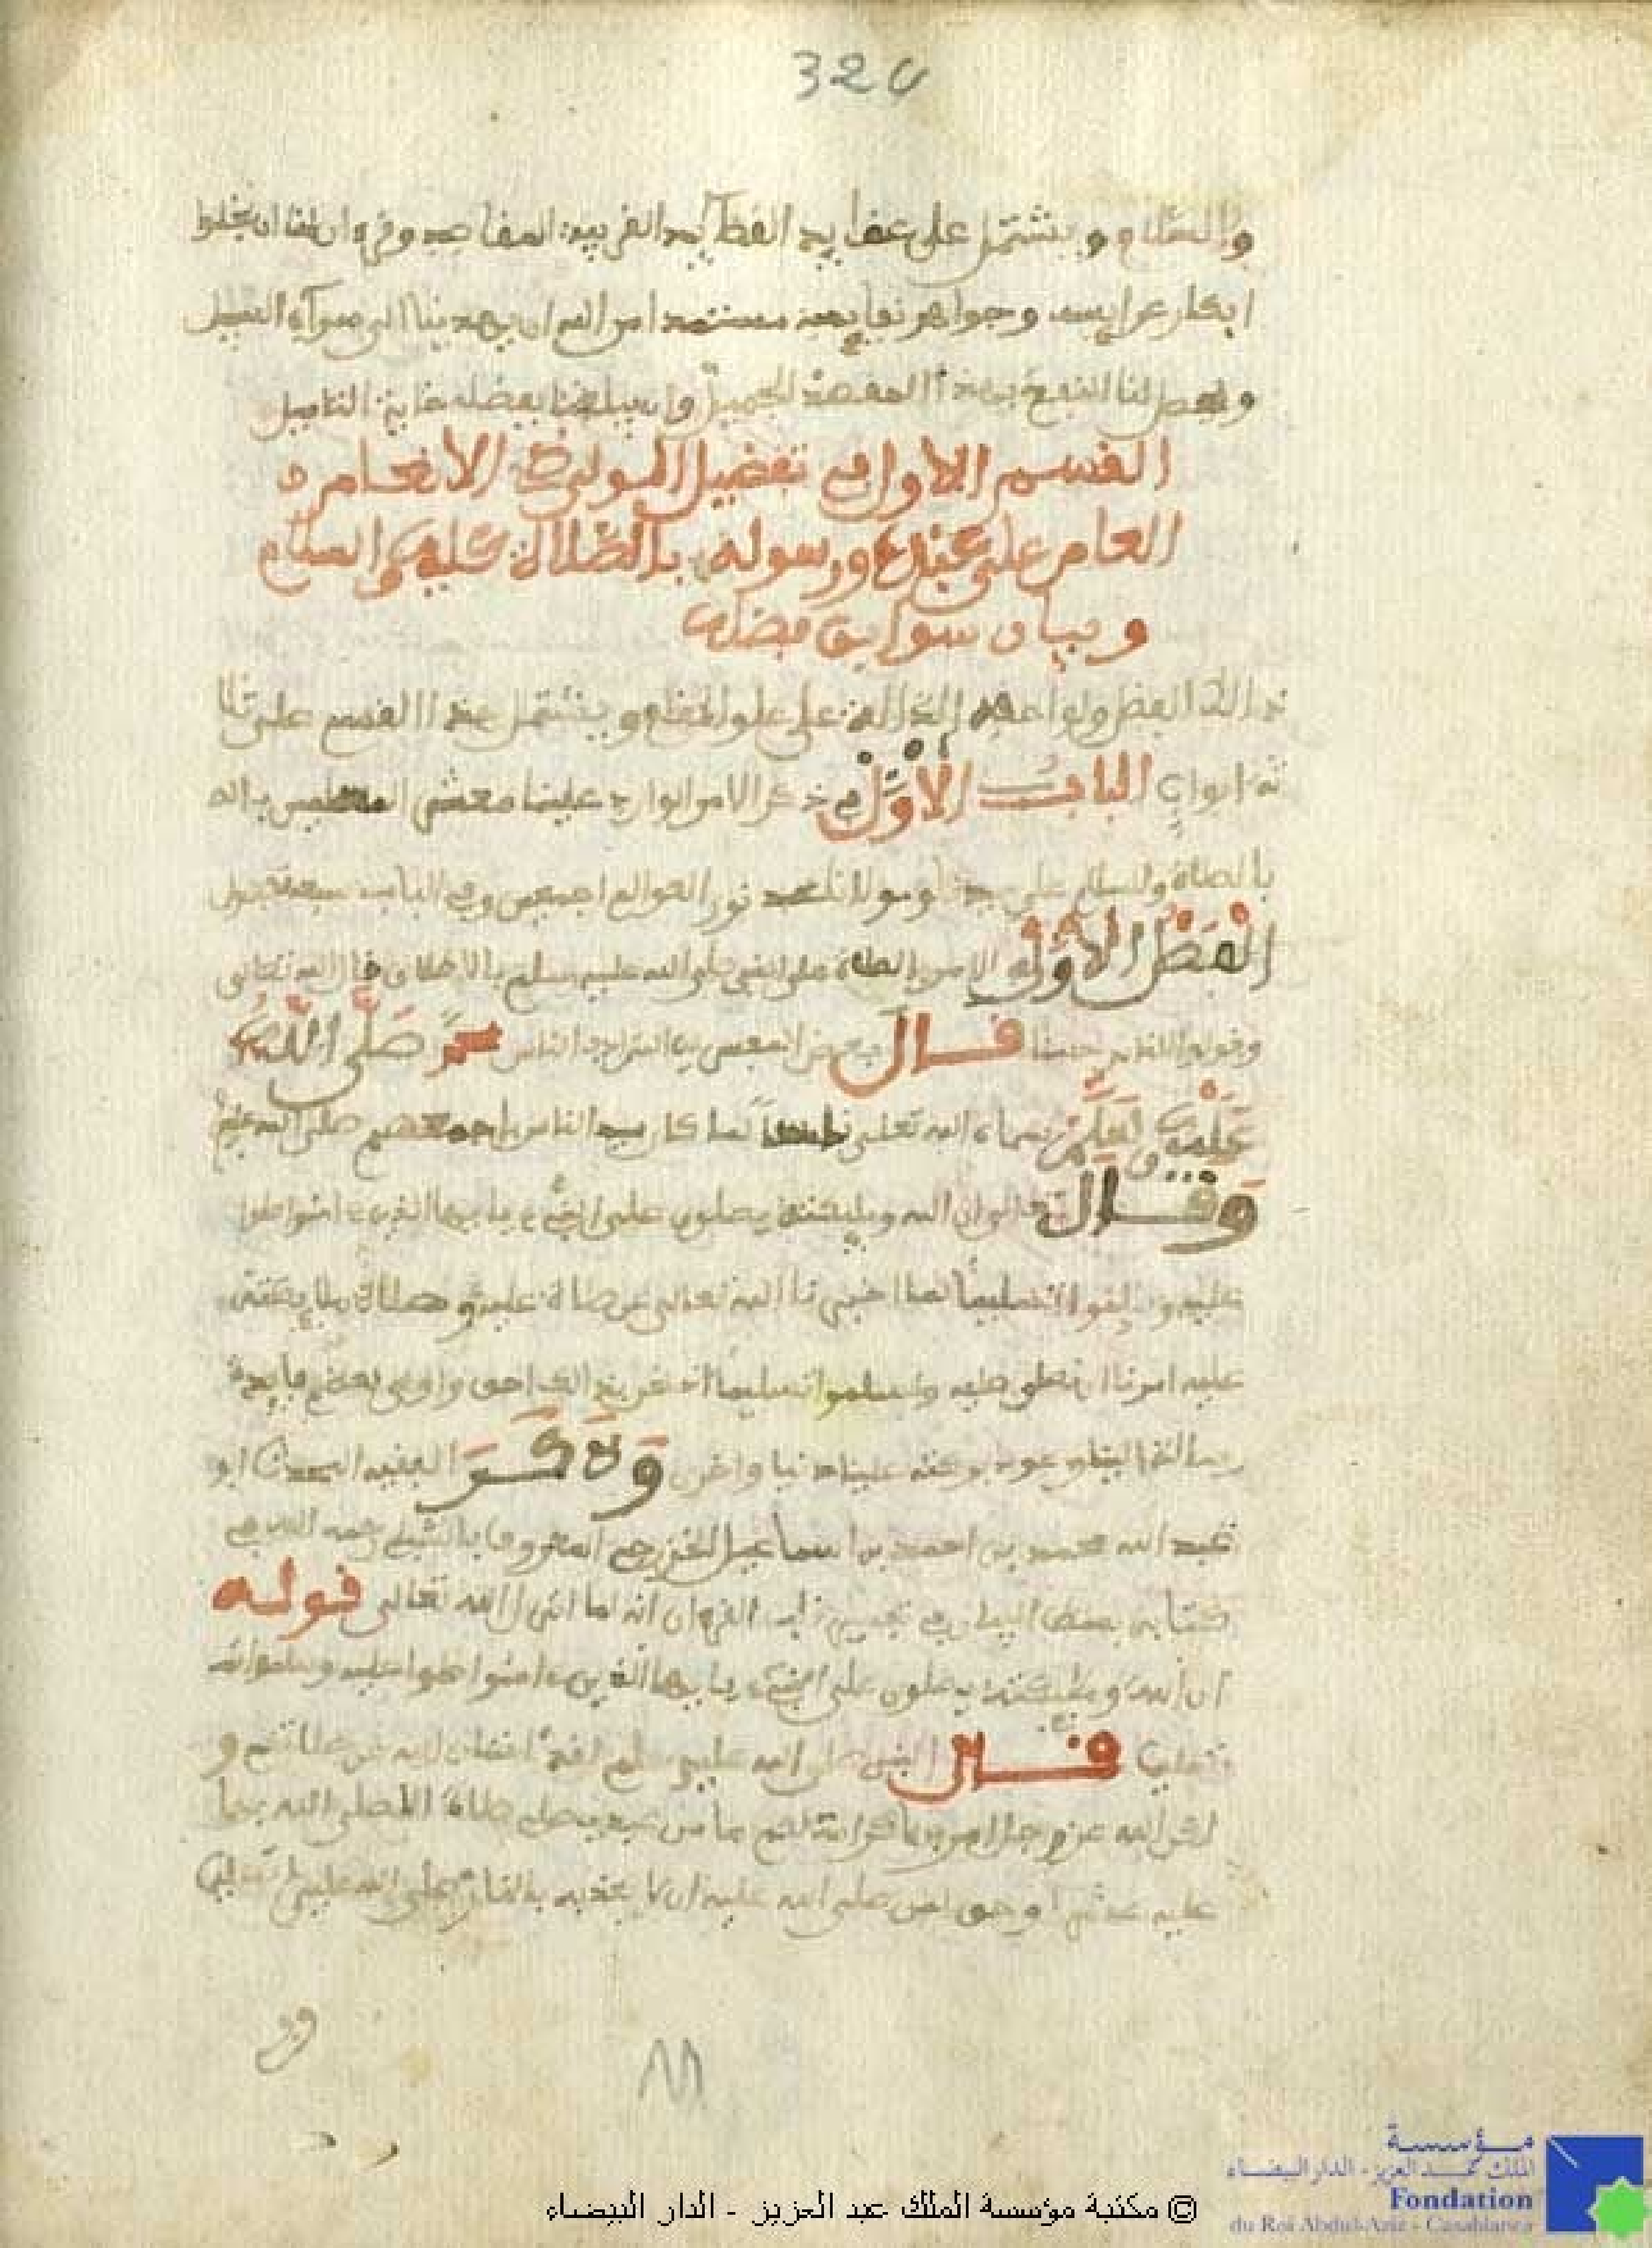 320
والسلام ويشتمل على عقايد القصايد الغريبة المقاصد وقد ان لنا ان نجلوا
ابكار عرايسه وجواهر نفايسه مستمدا من الله ان يهدينا الى سواء السبيل
ويجعل لنا النفع بهذا المقصد الجميل وان يبلغنا بفضله غاية التاميل
القسم الاول في تفضيل المولى ذي الانعام
العام على عبده ورسوله بالصلاة عليه والسلام
وبيان سوابق فضله
ذلك الفضل ولواحقه الدالة على علو ويشتمل هذا القسم على ثلا
ثة ابواب الباب الاول في ذكر الامر الوارد علينا معشر
بالصلاة والسلام على سيدنا ومولانا محمد نور العوالم اجمعين وفي الباب سبعة فصول
الفصل الاول في الامر بالصلاة على النبي صلى الله عليه وسلم بالاطلاق قال الله تعالى
وقولوا للناس حسنا قال بعض المفسرين المراد بالناس محمد صلى الله
عليه وسلم سماه الله تعالى ناسا لما كان سيد الناس باجمعهم صلى الله عليه
وقال تعالى ان الله ومليكته يصلون على النبيء يايها الذين ءامنوا صلوا
عليه وسلموا تسليما لما اخبرنا الله تعالى عن صلاة عليه وصلاة ملايكته
عليه امرنا ان نصلي عليه ونسلموا تسليما اذ نحن بذالك احق واولى بعظم فايدة
رسالته الينا وعود بركته علينا دنيا واخرى وذكر الفقيه المحدث ابو
عبد الله محمد بن احمد بن اسماعيل الخزرجي المعروف بالشبلي رحمه الله في
كتابه القرءان انه لما انزل الله تعالى قوله
ان الله ومليكته يصلون على النبيء يايها الذين ءامنوا صلوا عليه وسلموا
تسليما قال النبي صلى الله عليه وسلم لقد الله عن صلاتكم و
لكن الله عز وجل امر بها كرامة لكم ما من عبد يصلي صلاة الا صلى الله بها
عليه عشرا وحق لمن صلى الله عليه ان لا يعذبه بالنار صلى الله عليه
© مكتبة مؤسسة الملك عبد العزيز - الدار البيضاء
مؤسسة
الملك عبد العزيز - الدار البيضاء
Fondation
du Roi Abdul-Aziz - Casablanca